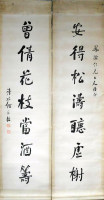 安得松濤聽虛榭
曾倩花枝當酒籌